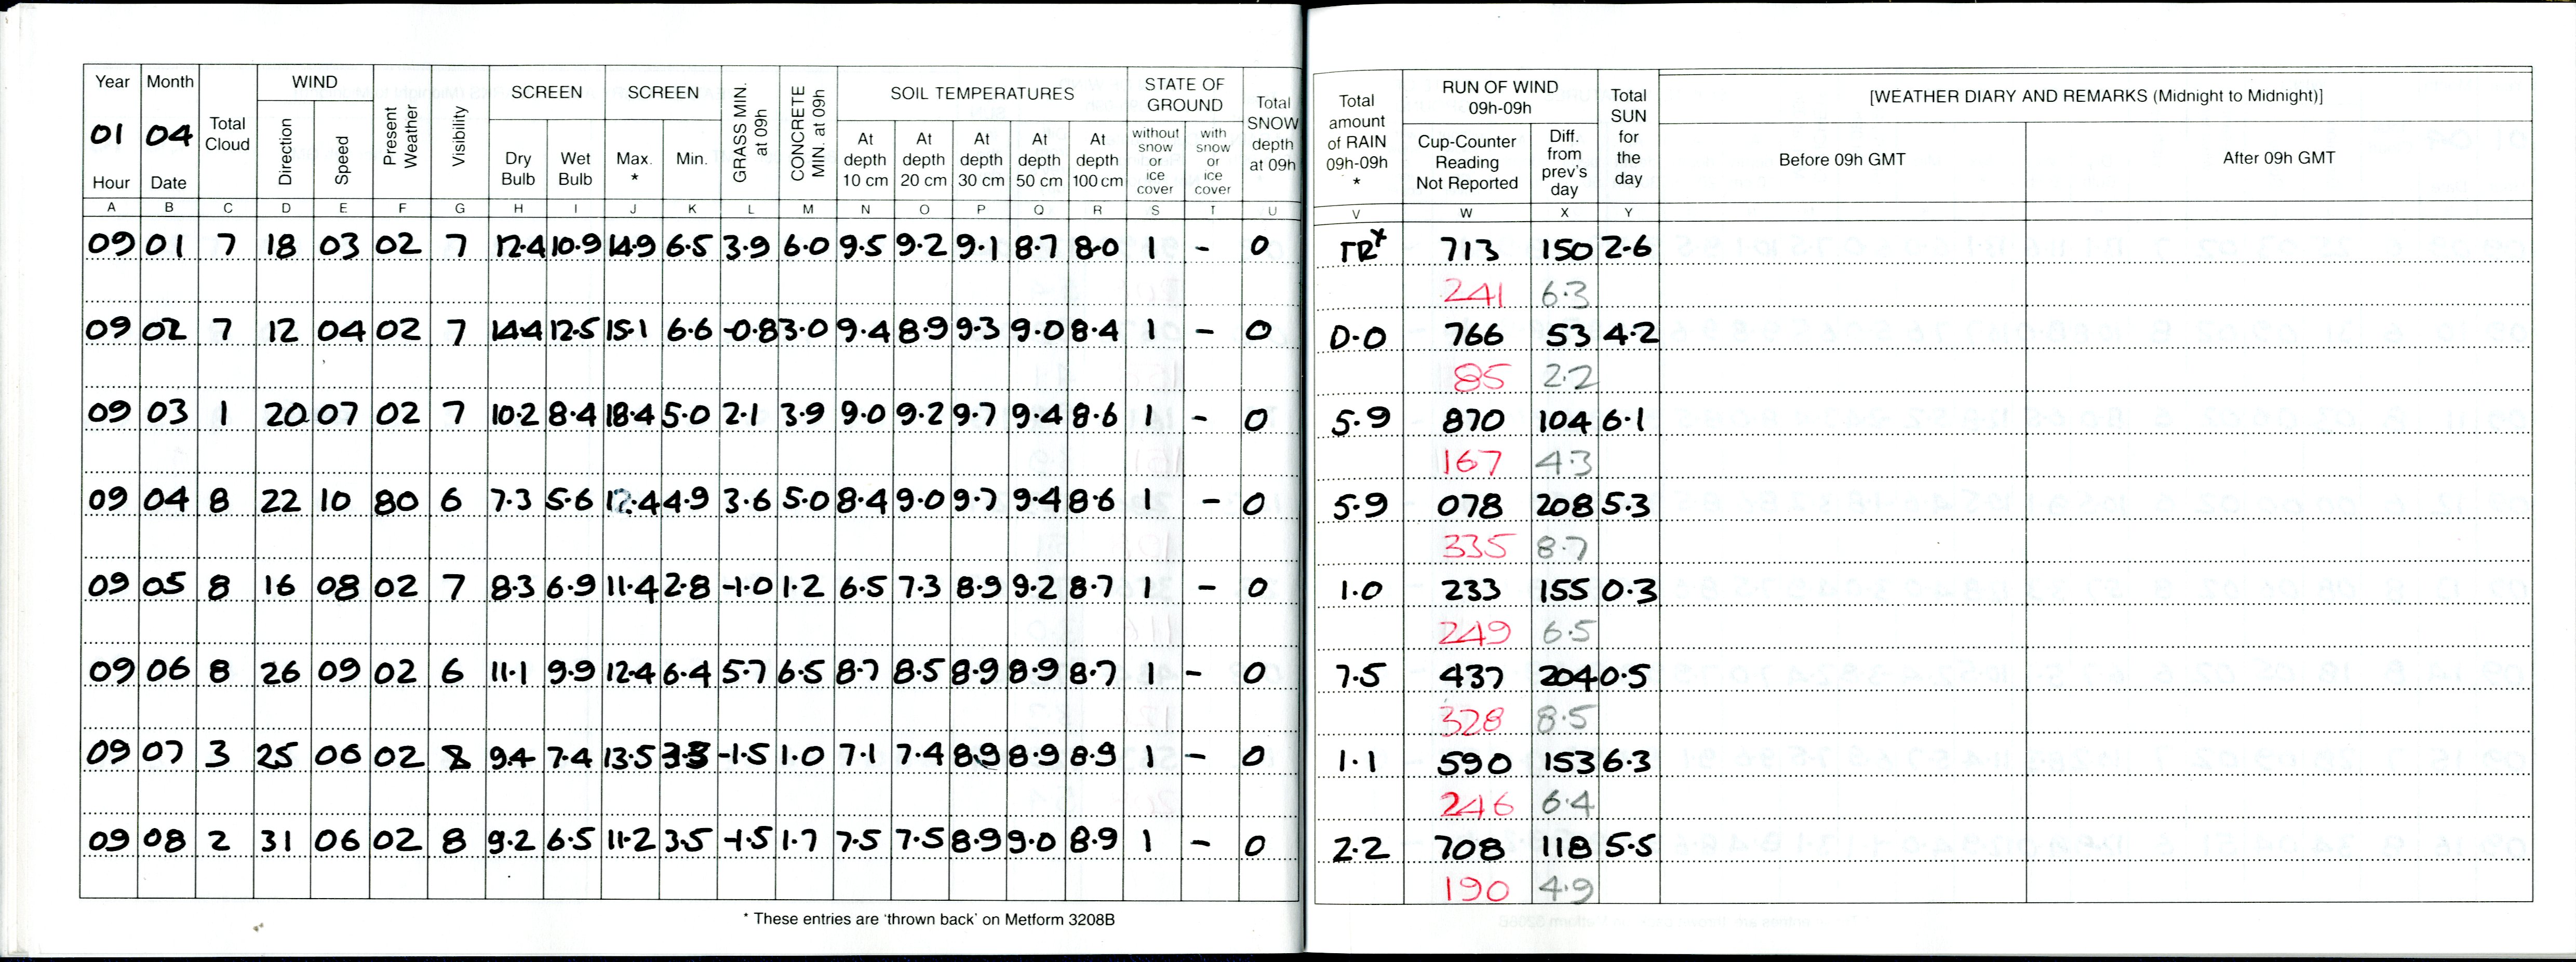 Year Month Total Cloud WIND Present Weather Visibility SCREEN SCREEN GRASS MIN. at 09h CONCRETE MIN. at 09h SOIL TEMPERATURES STATE OF GROUND Total SNOW depth at 09h Total amount of RAIN 09h-09h * RUN OF WIND 09h-09h Total SUN for the day [WEATHER DIARY AND REMARKS (Midnight to Midnight)]
01 04 Direction Speed Dry Bulb Wet Bulb Max. * Min. At depth 10 cm At depth 20 cm At depth 30 cm At depth 50 cm At depth 100 cm without snow or ice cover with snow or ice cover Cup-Counter Reading Not Reported Diff. from prev's day Before 09h GMT After 09h GMT
Hour Date
A B C D E F G H I J K L M N O P Q R S T U V W X Y
09 01 7 18 03 02 7 12.4 10.9 14.9 6.5 3.9 6.0 9.5 9.2 9.1 8.7 8.0 1 - 0 TR* 713 150 2.6
241 6.3
09 02 7 12 04 02 7 14.4 12.5 15.1 6.6 -0.8 3.0 9.4 8.9 9.3 9.0 8.4 1 - 0 0.0 766 53 4.2
85 2.2
09 03 1 20 07 02 7 10.2 8.4 18.4 5.0 2.1 3.9 9.0 9.2 9.7 9.4 8.6 1 - 0 5.9 870 104 6.1
167 4.3
09 04 8 22 10 80 6 7.3 5.6 12.4 4.9 3.6 5.0 8.4 9.0 9.7 9.4 8.6 1 - 0 5.9 078 208 5.3
335 8.7
09 05 8 16 08 02 7 8.3 6.9 11.4 2.8 -1.0 1.2 6.5 7.3 8.9 9.2 8.7 1 - 0 1.0 233 155 0.3
249 6.5
09 06 8 26 09 02 6 11.1 9.9 12.4 6.4 5.7 6.5 8.7 8.5 8.9 8.9 8.7 1 - 0 7.5 437 204 0.5
328 8.5
09 07 3 25 06 02 8 9.4 7.4 13.5 3.3 -1.5 1.0 7.1 7.4 8.9 8.9 8.9 1 - 0 1.1 590 153 6.3
246 6.4
09 08 2 31 06 02 8 9.2 6.5 11.2 3.5 -1.5 1.7 7.5 7.5 8.9 9.0 8.9 1 - 0 2.2 708 118 5.5
190 4.9
* These entries are 'thrown back' on Metform 3208B